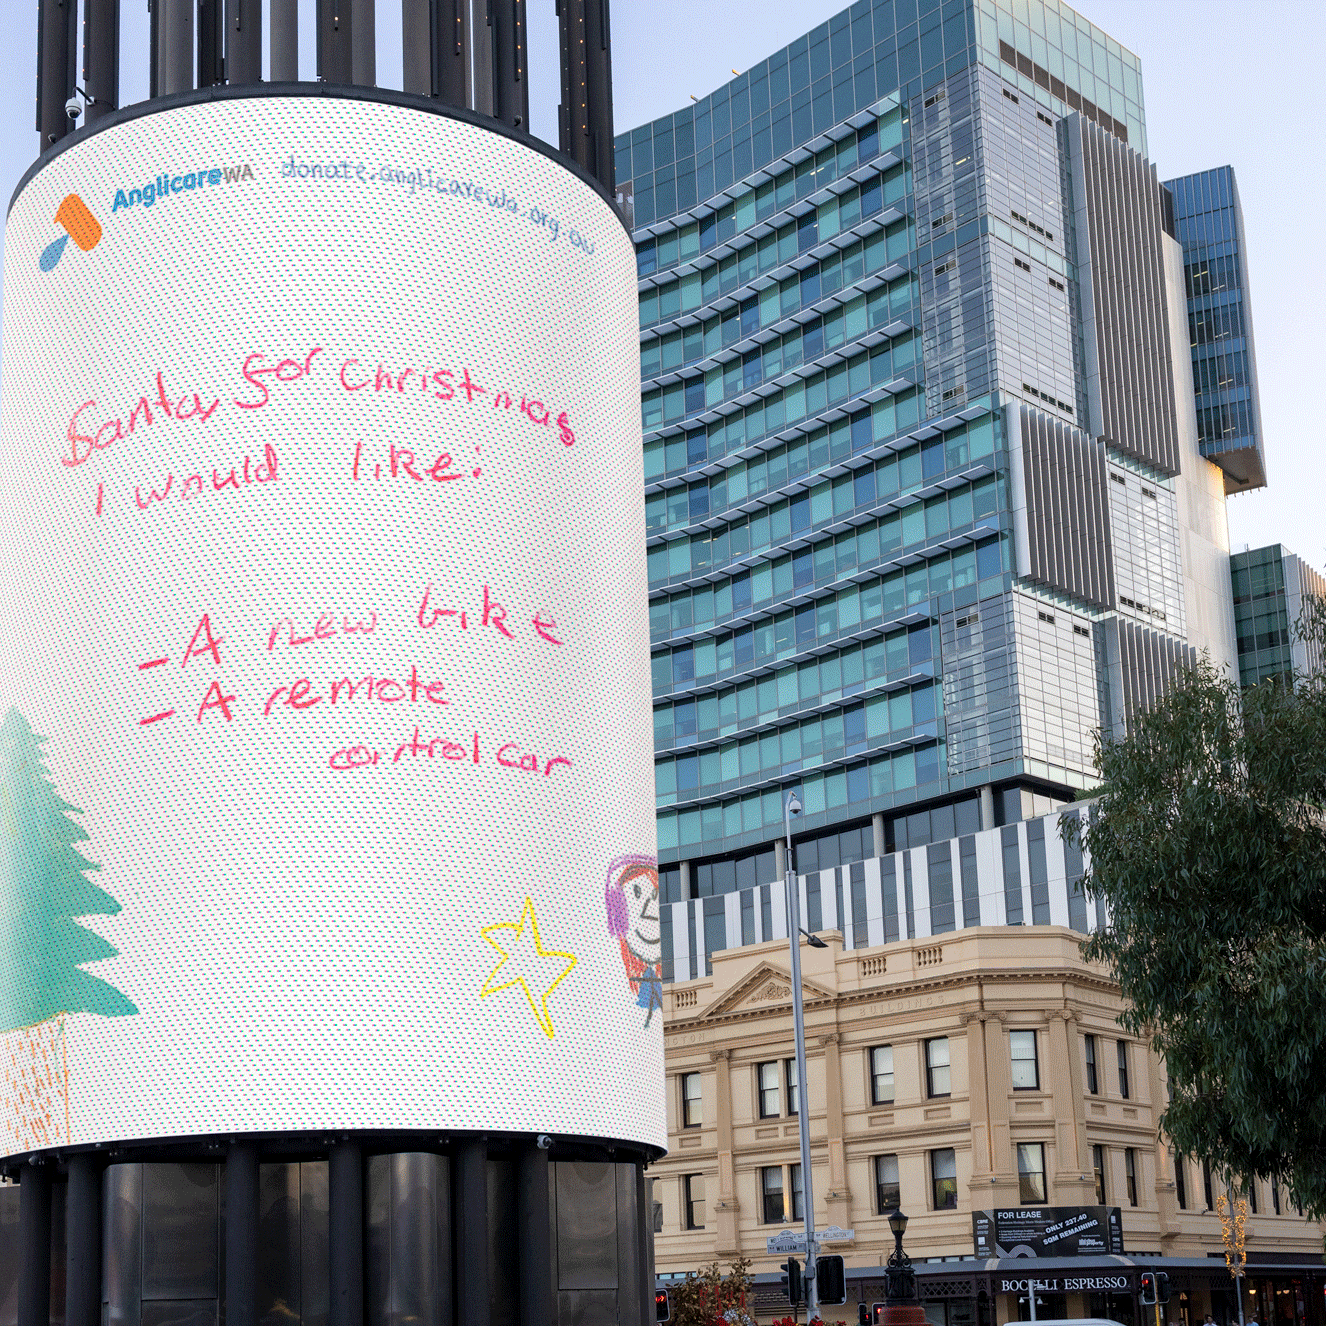 AnglicareWA
donate.anglicarewa.org.au
Santa, for Christmas
I would like:
- A new bike
- A remote
control car
BUILDINGS
FOR LEASE
ONLY 237.40
SQM REMAINING
WILLIAM
WELLINGTON
BOCELLI ESPRESSO